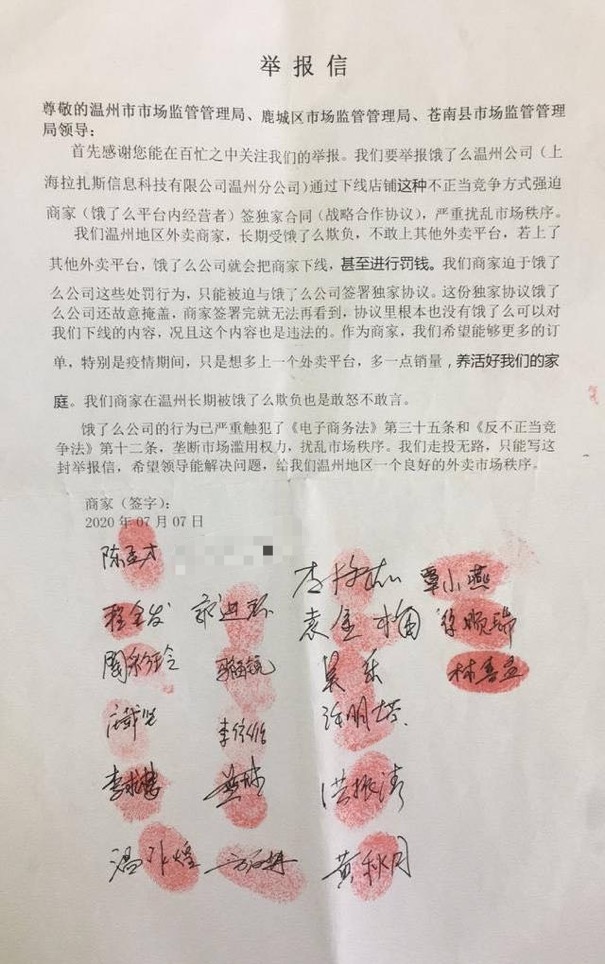 举报信
尊敬的温州市市场监管管理局、鹿城区市场监管管理局、苍南县市场监管管理
局领导：
首先感谢您能在百忙之中关注我们的举报。我们要举报饿了么温州公司（上
海拉扎斯信息科技有限公司温州分公司)通过下线店铺这种不正当竞争方式强迫
商家（饿了么平台内经营者）签独家合同（战略合作协议），严重扰乱市场秩序。
我们温州地区外卖商家，长期受饿了么欺负，不敢上其他外卖平台，若上了
其他外卖平台，饿了么公司就会把商家下线，甚至进行罚钱。我们商家迫于饿了
么公司这些处罚行为，只能被迫与饿了么公司签署独家协议。这份独家协议饿了
么公司还故意掩盖，商家签署完就无法再看到，协议里根本也没有饿了么可以对
我们下线的内容，况且这个内容也是违法的。作为商家，我们希望能够更多的订
单，特别是疫情期间，只是想多上一个外卖平台，多一点销量，养活好我们的家
庭。我们商家在温州长期被饿了么欺负也是敢怒不敢言。
饿了么公司的行为已严重触犯了《电子商务法》第三十五条和《反不正当竞
争法》第十二条，垄断市场滥用权力，扰乱市场秩序。我们走投无路，只能写这
封举报信，希望领导能解决问题，给我们温州地区一个良好的外卖市场秩序。
商家（签字）：
2020年07月07日
覃小燕
袁金梅
吴乐
黄秋月